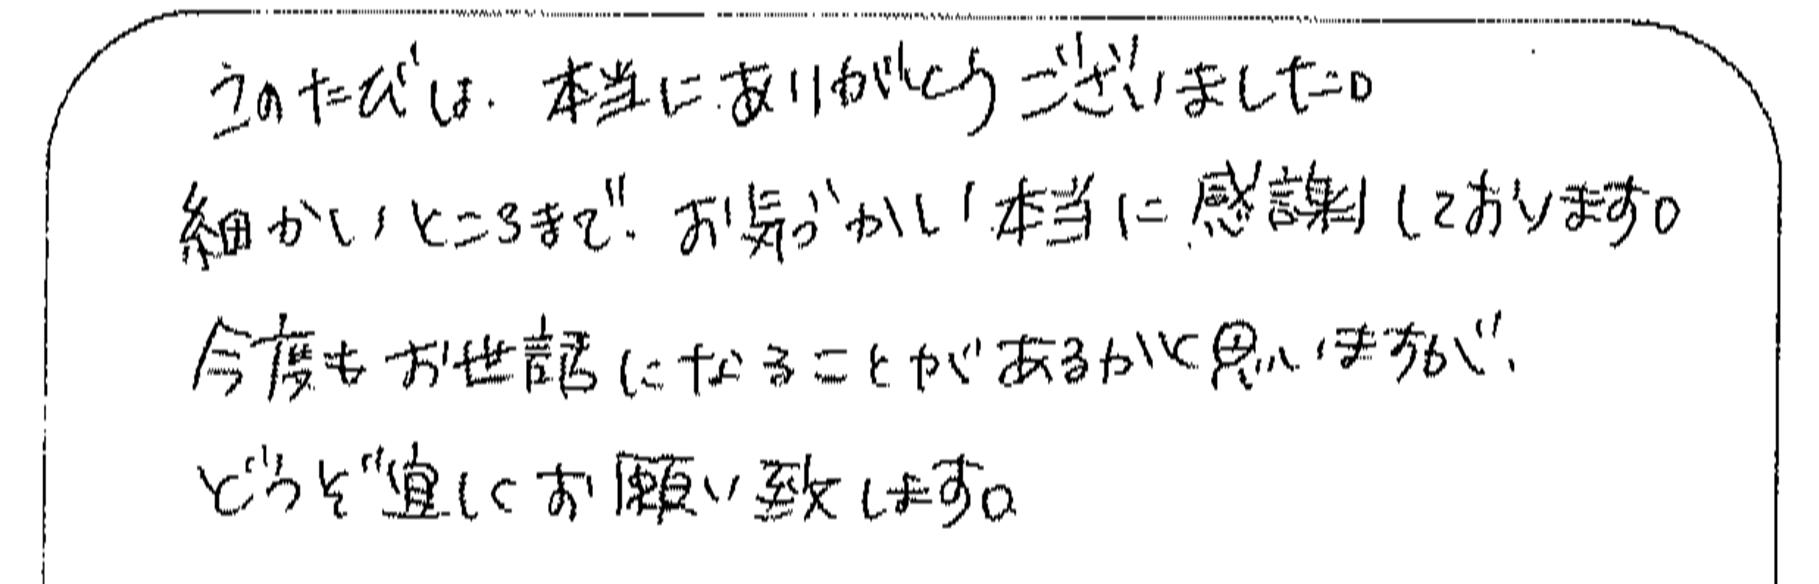 このたびは、本当にありがとうございました。
細かいところまで、お気づかい本当に感謝しております。
今度もお世話になることがあるかと思いますが、
どうぞ宜しくお願い致します。